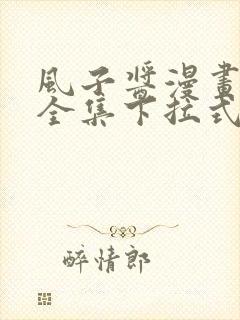 風子醬漫畫
全集下拉式
醉情郎